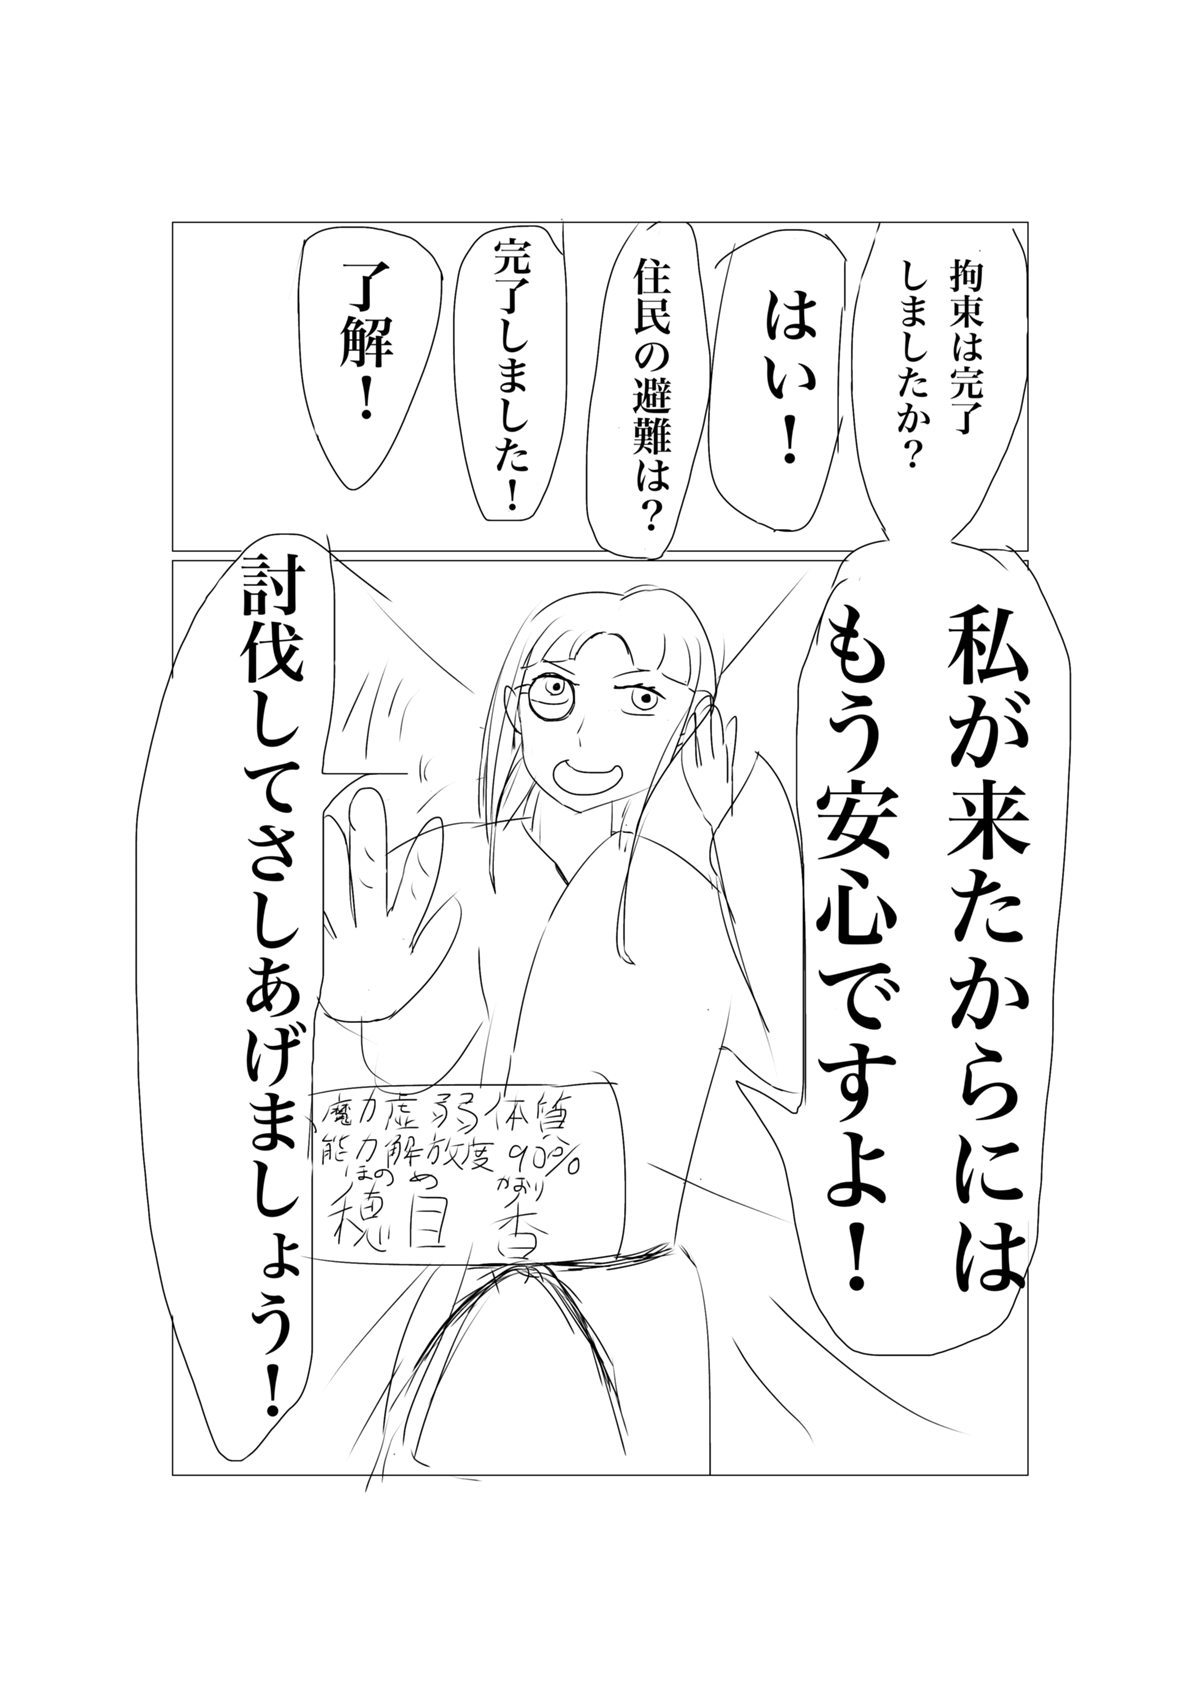 拘束は完了
しましたか？
はい！
住民の避難は？
完了しました！
了解！
私が来たからには
もう安心ですよ！
討伐してさしあげましょう！
魔力虚弱体質
能力解放度 90%
ほのめ かおり
穂目 香